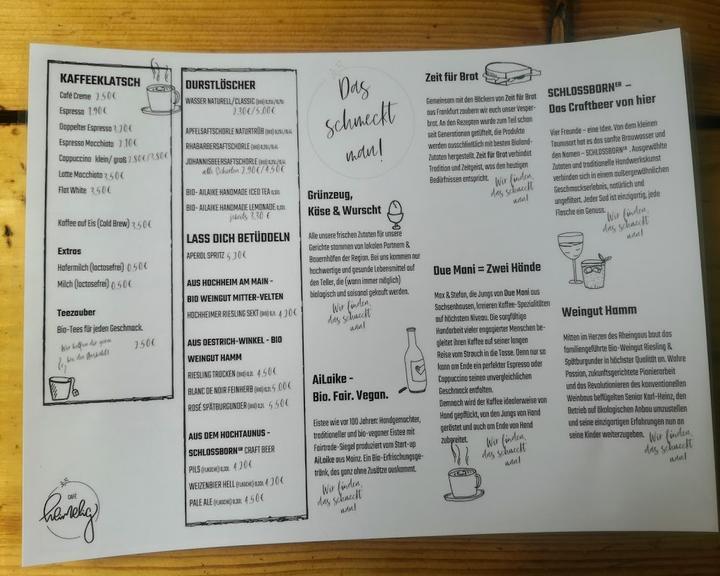 KAFFEEKLATSCH
Café Creme 2,50€
Espresso 1,90€
Doppelter Espresso 3,20€
Espresso Macchiato 2,10€
Cappuccino klein/ groß 2,80€/3,80€
Latte Macchiato 3,50€
Flat White 3,50€
Kaffee auf Eis (Cold Brew) 3,50€
Extras
Hafermilch (lactosefrei) 0,50€
Milch (lactosefrei) 0,50€
Teezauber
Bio-Tees für jeden Geschmack.
Wir helfen dir gern
bei der Auswahl! 2,50€
DURSTLÖSCHER
WASSER NATURELL/CLASSIC (BIO) 0,25L/0,75L
2,30€/5,00€
APFELSAFTSCHORLE NATURTRÜB (BIO) 0,25L/0,4L
RHABARBERSAFTSCHORLE (BIO) 0,25L/0,4L
JOHANNISBEERSAFTSCHORLE (BIO) 0,25L/0,4L
alle Schorlen 2,90€/4,50€
BIO- AILAIKE HANDMADE ICED TEA 0,33L
BIO- AILAIKE HANDMADE LEMONADE 0,33L
jeweils 3,30 €
LASS DICH BETÜDDELN
APEROL SPRITZ 5,30€
AUS HOCHHEIM AM MAIN -
BIO WEINGUT MITTER-VELTEN
HOCHHEIMER RIESLING SEKT (BIO) 0,1L 4,20€
AUS OESTRICH-WINKEL - BIO
WEINGUT HAMM
RIESLING TROCKEN (BIO) 0,2L 4,50€
BLANC DE NOIR FEINHERB (BIO) 0,2L 5,00€
ROSÉ SPÄTBURGUNDER (BIO) 0,2L 5,50€
AUS DEM HOCHTAUNUS -
SCHLOSSBORNER CRAFT BEER
PILS (FLASCHE) 0,33L 4,20€
WEIZENBIER HELL (FLASCHE) 0,33L 4,20€
PALE ALE (FLASCHE) 0,33L 4,50€
Das
schmeckt
man!
Grünzeug,
Käse & Wurscht
Alle unsere frischen Zutaten für unsere
Gerichte stammen von lokalen Partnern &
Bauernhöfen der Region. Bei uns kommen nur
hochwertige und gesunde Lebensmittel auf
den Teller, die (wann immer möglich)
biologisch und saisonal gekauft werden.
Wir finden,
das schmeckt
man!
AiLaike -
Bio. Fair. Vegan.
Eistee wie vor 100 Jahren: Handgemachter,
traditioneller und bio-veganer Eistee mit
Fairtrade-Siegel produziert vom Start-up
AiLaike aus Mainz. Ein Bio-Erfrischungsge-
tränk, das ganz ohne Zusätze auskommt.
Wir finden,
das schmeckt
man!
Zeit für Brot
Gemeinsam mit den Bäckern von Zeit für Brot
aus Frankfurt zaubern wir euch unser Vesper-
brot. An den Rezepturen wurde zum Teil schon
seit Generationen getüftelt, die Produkte
werden ausschließlich mit besten Bioland-
Zutaten hergestellt. Zeit für Brot verbindet
Tradition und Zeitgeist, was den heutigen
Bedürfnissen entspricht.
Wir finden,
das schmeckt
man!
Due Mani = Zwei Hände
Max & Stefan, die Jungs von Due Mani aus
Sachsenhausen, kreieren Kaffee-Spezialitäten
auf höchstem Niveau. Die sorgfältige
Handarbeit vieler engagierter Menschen be-
gleitet ihren Kaffee auf seiner langen
Reise vom Strauch in die Tasse. Denn nur so
kann am Ende ein perfekter Espresso oder
Cappuccino seinen unvergleichlichen
Geschmack entfalten.
Demnach wird der Kaffee idealerweise von
Hand gepflückt, von den Jungs von Hand
geröstet und auch am Ende von Hand
zubereitet.
Wir finden,
das schmeckt
man!
SCHLOSSBORNER –
Das Craftbeer von hier
Vier Freunde – eine Idee. Von dem kleinen
Taunusort hat es das sanfte Brauwasser und
den Namen – SCHLOSSBORNER. Ausgewählte
Zutaten und traditionelle Handwerkskunst
verbinden sich in einem außergewöhnlichen
Geschmackserlebnis, natürlich und
ungefiltert. Jeder Sud ist einzigartig, jede
Flasche ein Genuss.
Wir finden,
das schmeckt
man!
Weingut Hamm
Mitten im Herzen des Rheingaus baut das
familiengeführte Bio-Weingut Riesling &
Spätburgunder in höchster Qualität an. Wahre
Passion, zukunftsgerichtete Pionierarbeit
und das Revolutionieren des konventionellen
Weinbaus beflügelten Senior Karl-Heinz, den
Betrieb auf ökologischen Anbau umzustellen
und seine einzigartigen Erfahrungen nun an
seine Kinder weiterzugeben.
Wir finden,
das schmeckt
man!
CAFÉ